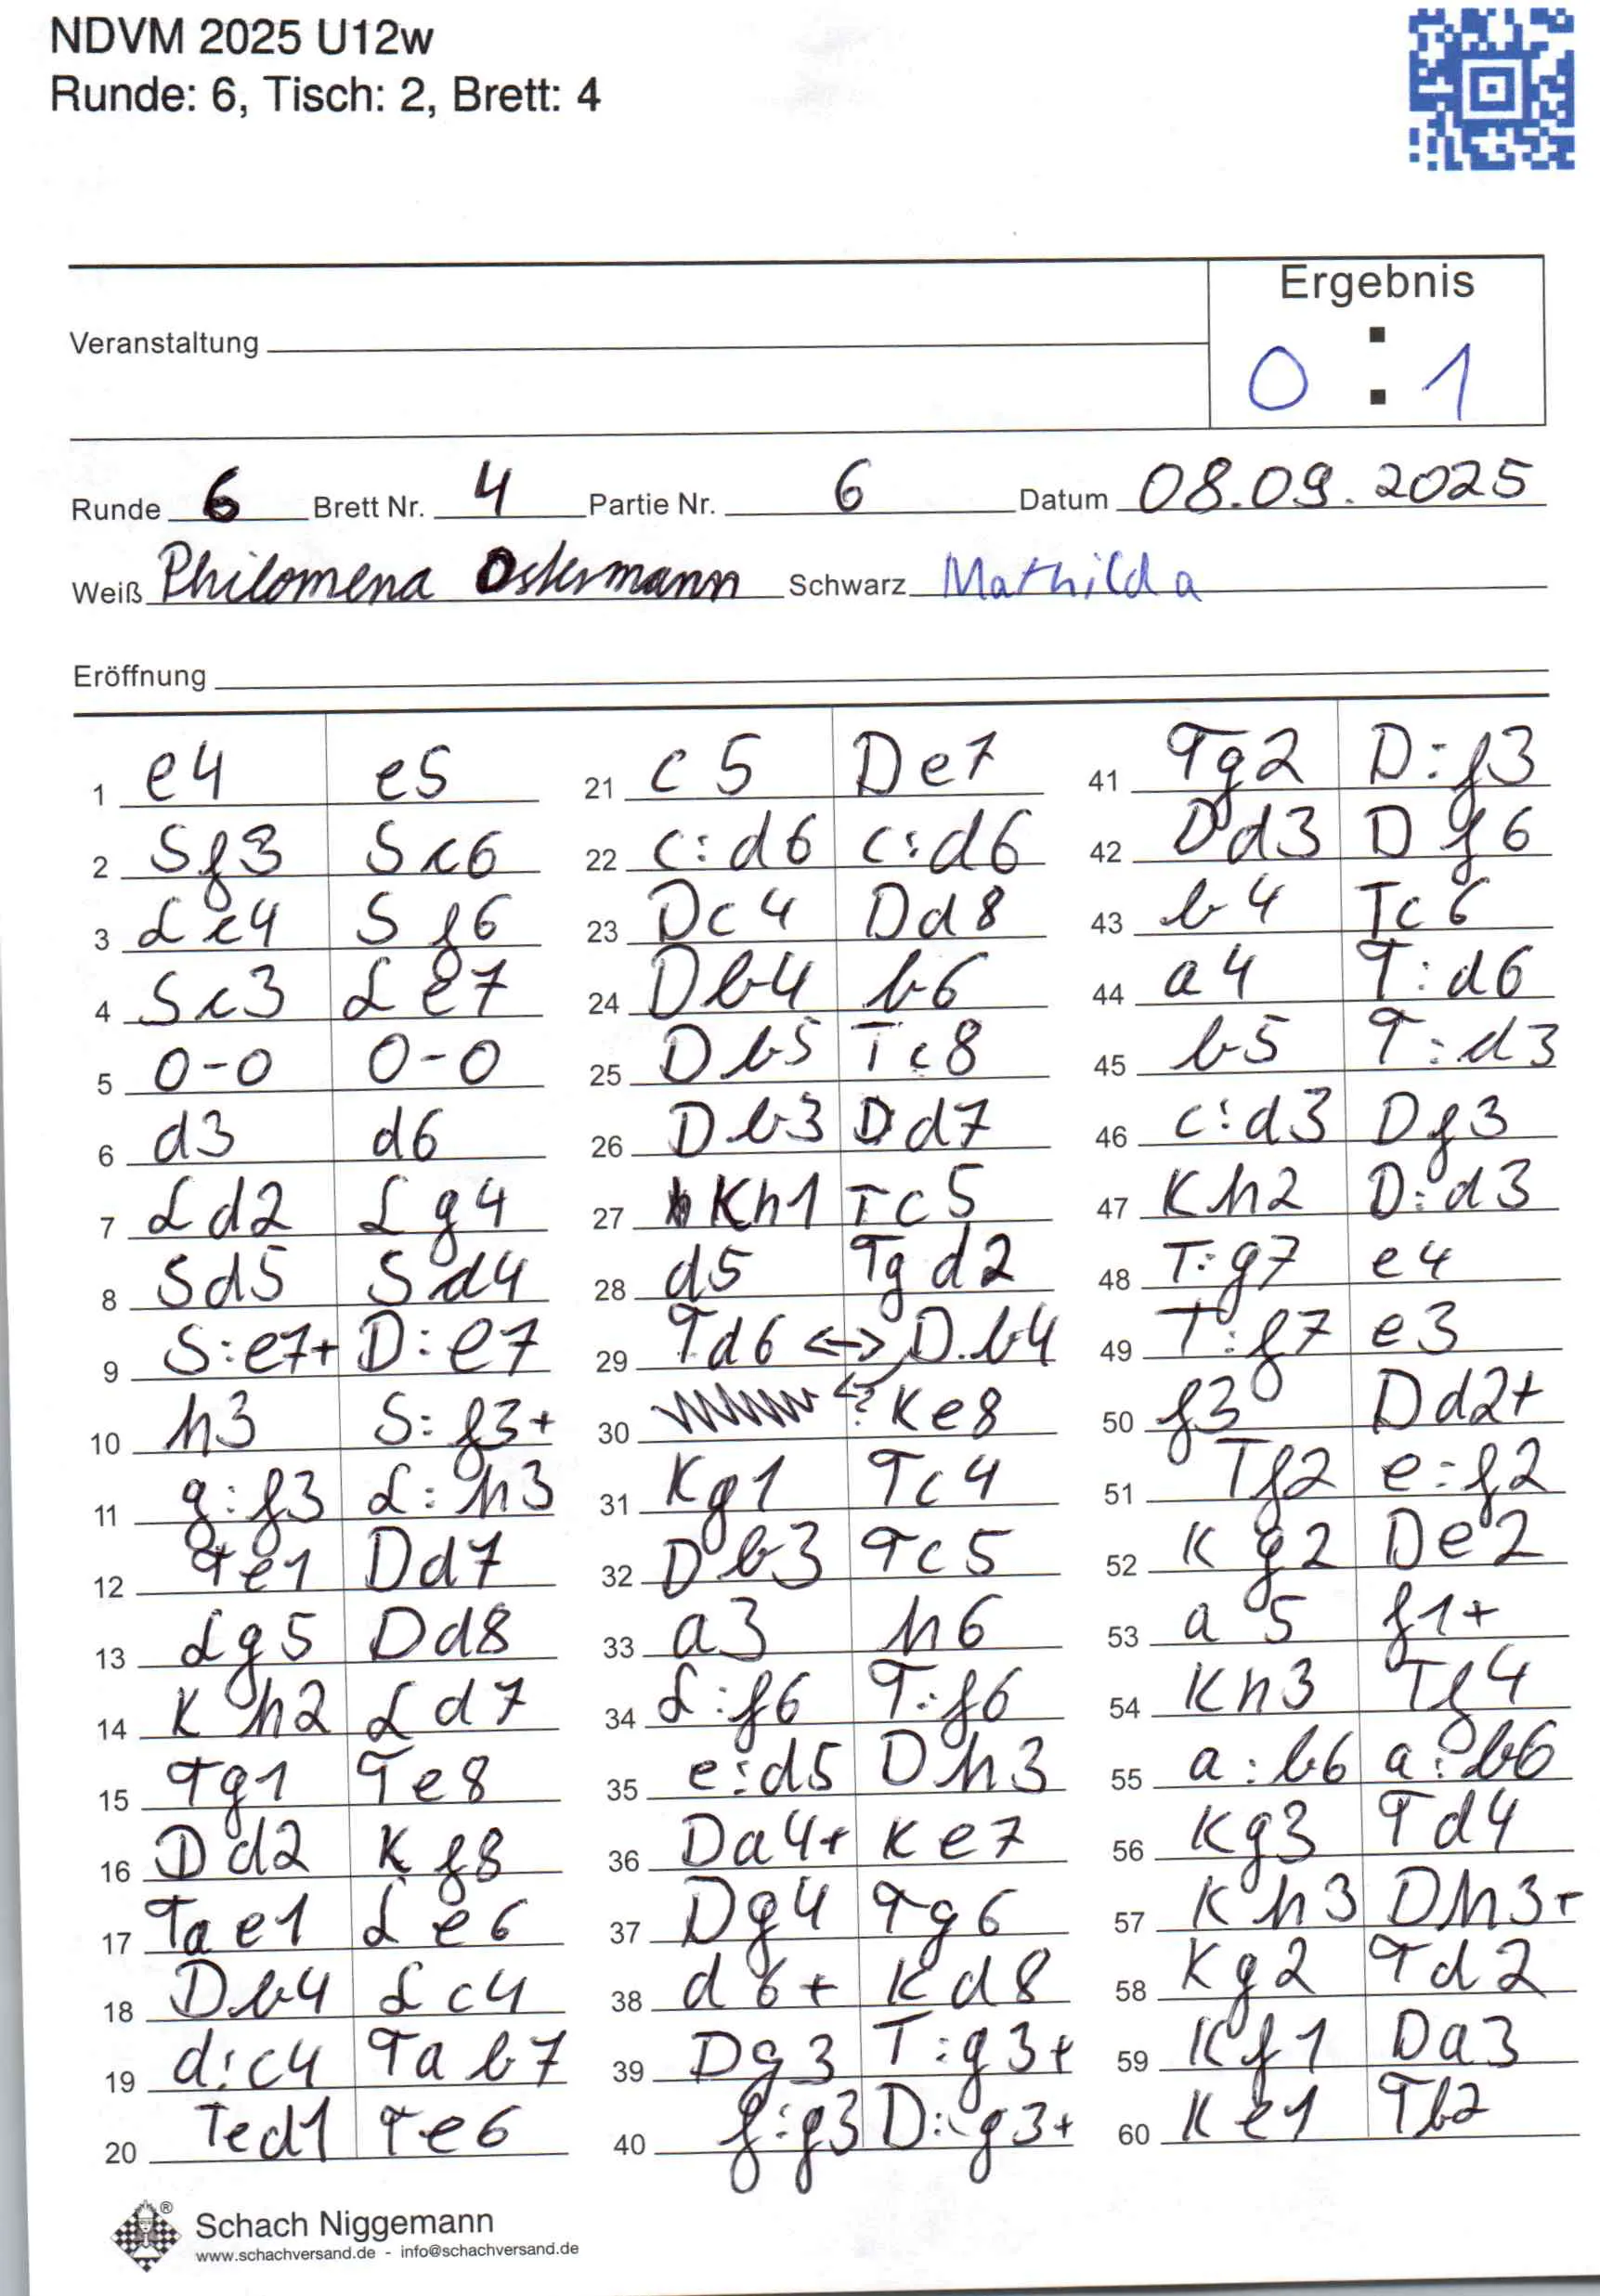 NDVM 2025 U12w
Runde: 6, Tisch: 2, Brett: 4
Ergebnis
Veranstaltung
0 : 1
Runde 6 Brett Nr. 4 Partie Nr. 6 Datum 08.09.2025
Weiß Philomena Ostermann Schwarz Mathilda
Eröffnung
1 e4 e5
2 Sf3 Sc6
3 Lc4 Sf6
4 Sc3 Le7
5 0-0 0-0
6 d3 d6
7 Ld2 Lg4
8 Sd5 Sd4
9 S:e7+ D:e7
10 h3 S:f3+
11 g:f3 L:h3
12 Te1 Dd7
13 Lg5 Dd8
14 Kh2 Ld7
15 Tg1 Te8
16 Dd2 Kf8
17 Tae1 Le6
18 Db4 Lc4
19 d:c4 Tab7
20 Ted1 Te6
21 c5 De7
22 c:d6 c:d6
23 Dc4 Dd8
24 Db4 b6
25 Db5 Tc8
26 Db3 Dd7
27 Kh1 Tc5
28 d5 Tgd2
29 Td6 <-> D.b4
30 ? Ke8
31 Kg1 Tc4
32 Db3 Tc5
33 a3 h6
34 L:f6 T:f6
35 e:d5 Dh3
36 Da4+ Ke7
37 Dg4 Tg6
38 d6+ Kd8
39 Dg3 T:g3+
40 f:g3 D:g3+
41 Tg2 D:f3
42 Dd3 Df6
43 b4 Tc6
44 a4 T:d6
45 b5 T:d3
46 c:d3 Df3
47 Kh2 D:d3
48 T:g7 e4
49 T:f7 e3
50 f3 Dd2+
51 Tf2 e:f2
52 Kg2 De2
53 a5 f1+
54 Kh3 Tf4
55 a:b6 a:b6
56 Kg3 Td4
57 Kh3 Dh3+
58 Kg2 Td2
59 Kf1 Da3
60 Ke1 Tb2
®
Schach Niggemann
www.schachversand.de - info@schachversand.de